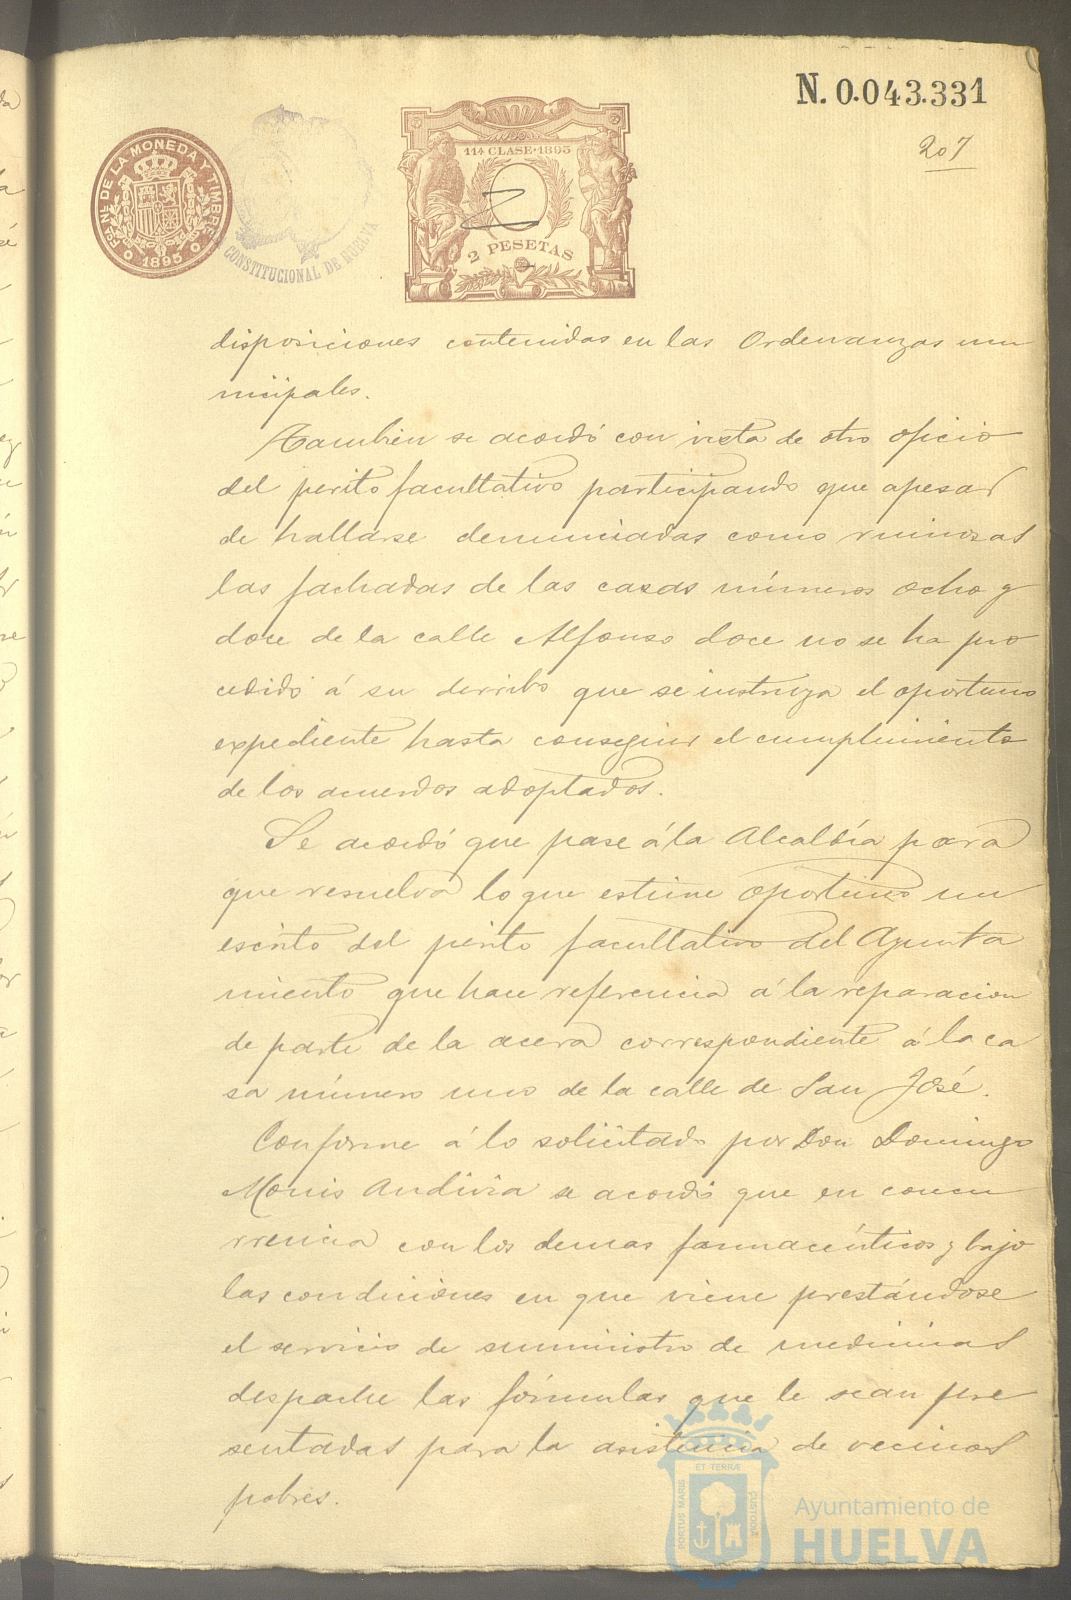 N. 0.043.331
207
FCA. NL. DE LA MONEDA Y TIMBRE
1895
CONSTITUCIONAL DE HUELVA
11ª CLASE·1895
2 PESETAS
disposiciones contenidas en las Ordenanzas mu
nicipales.
Tambien se acordó con vista de otro oficio
del perito facultativo participando que apesar
de hallarse denunciadas como ruinosas
las fachadas de las casas números ocho y
doce de la calle Alfonso doce no se ha pro
cedido á su derribo que se instruya el oportuno
expediente hasta conseguir el cumplimiento
de los acuerdos adoptados.
Se acordó que pase á la Alcaldía para
que resuelva lo que estime oportuno un
escrito del perito facultativo del Ayunta
miento que hace referencia á la reparacion
de parte de la acera correspondiente á la ca
sa número uno de la calle de San José.
Conforme á lo solicitado por Don Domingo
Monis Andivia se acordó que en concu
rrencia con los demas farmacéuticos y bajo
las condiciones en que viene prestándose
el servicio de suministro de medicinas
despache las fórmulas que le sean pre
sentadas para la asistencia de vecinos
pobres.
ET TERRÆ
PORTUS MARIS
CUSTODIA
Ayuntamiento de
HUELVA